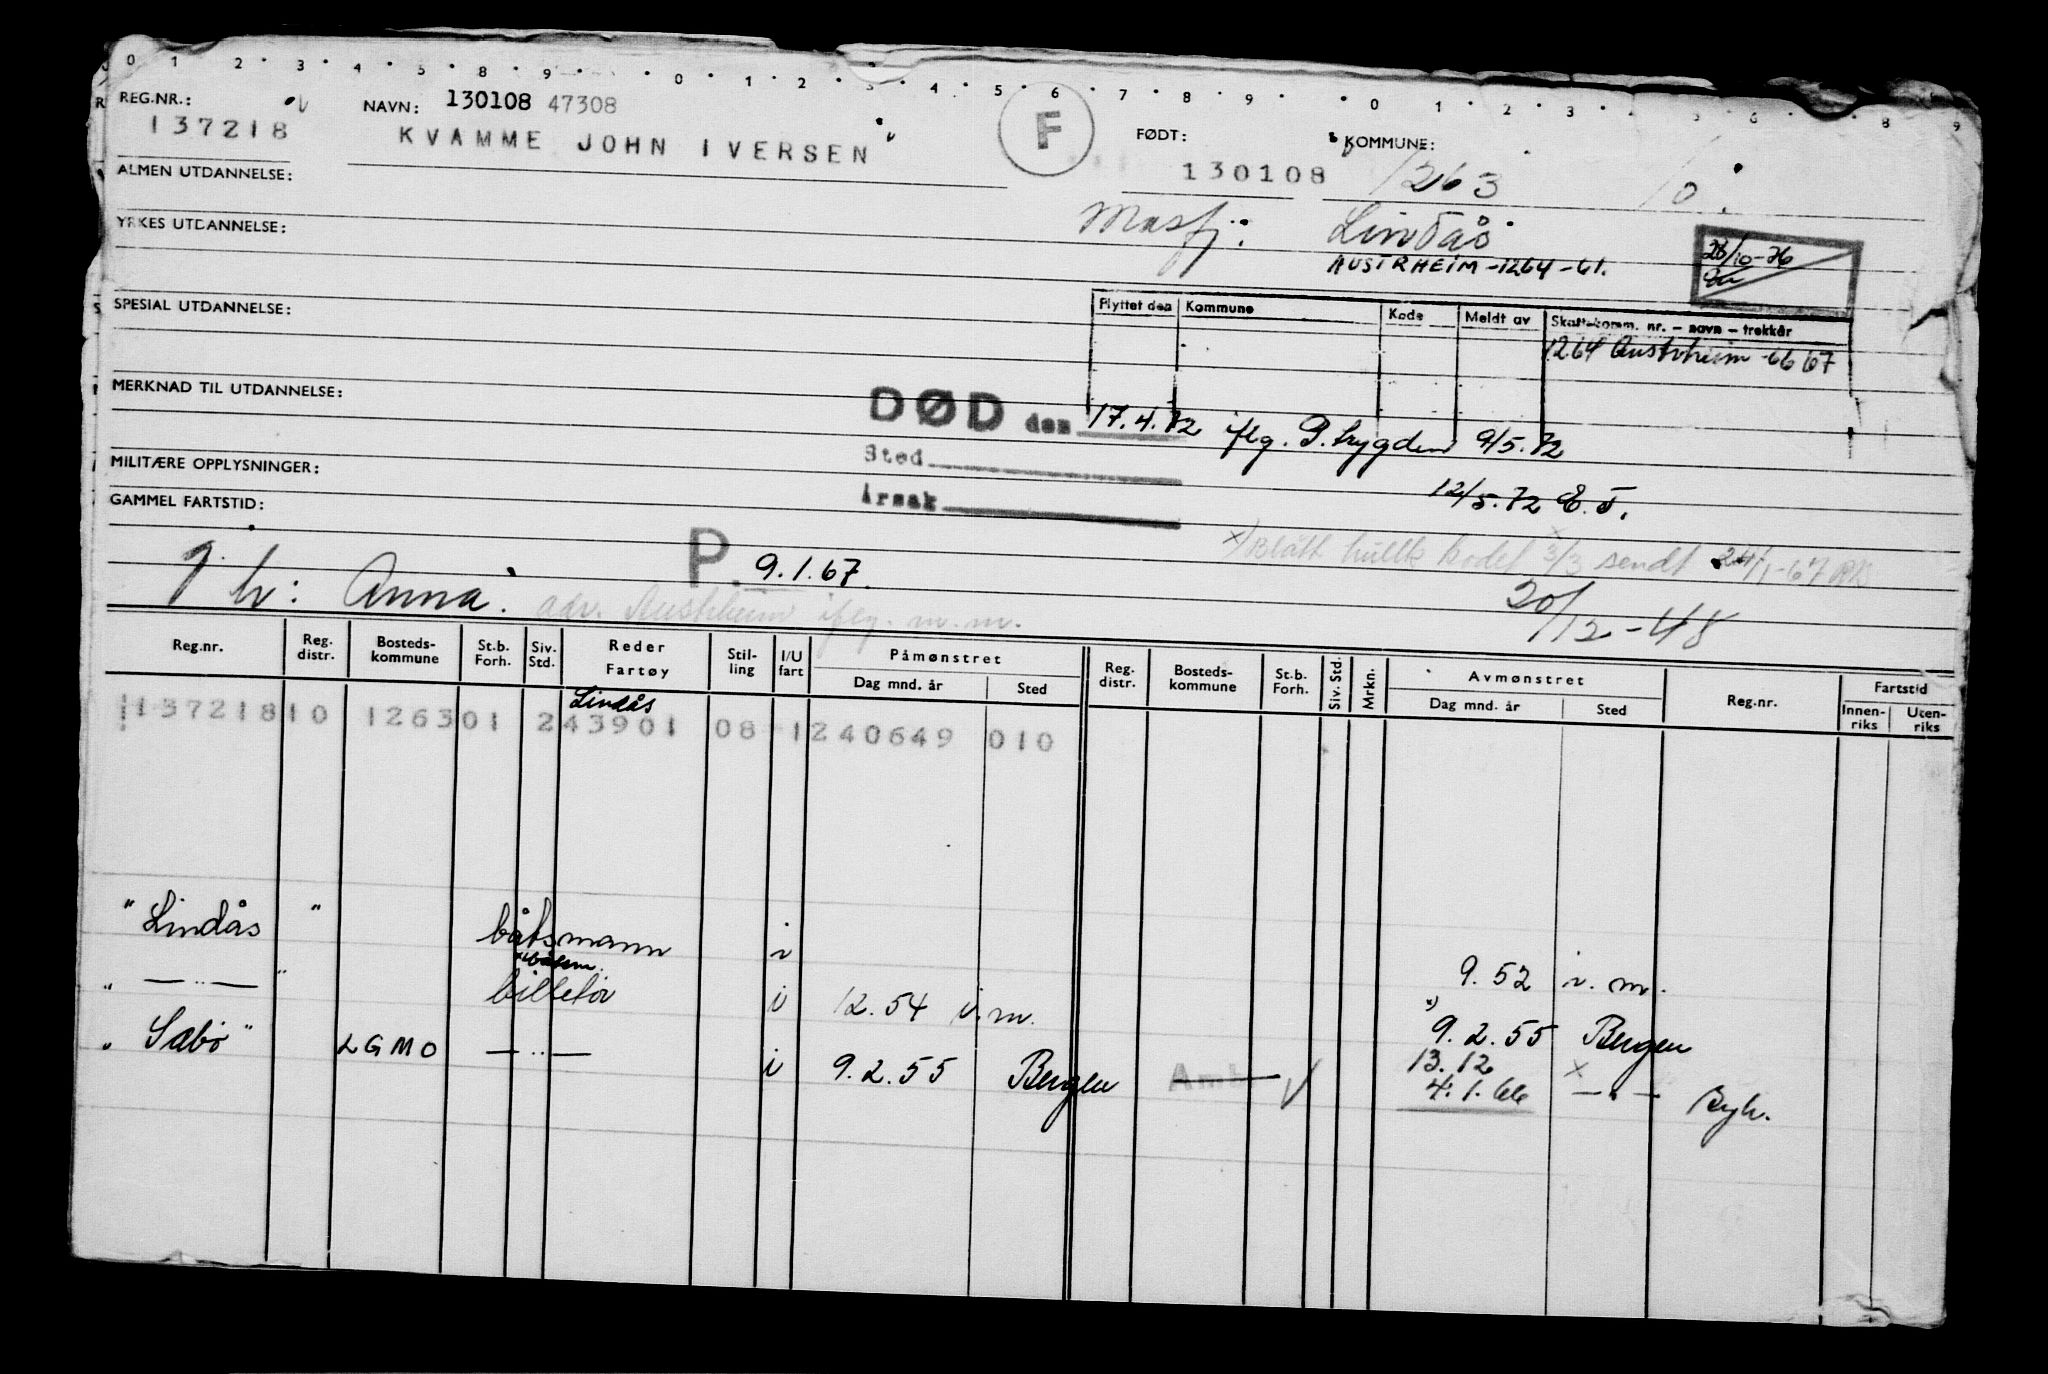 0 1 2 · 3 · 4 · 5 · 8 · 9 · · 0 · 1 · 2 · 3 · 4 · 5 · 6 · 7 · 8 · 9 · · 0 1 2 3 5 6 8 9
REG.NR.: NAVN: 130108 47308
137218 KVAMME JOHN IVERSEN F FØDT: 130108 KOMMUNE: 1263 10.
ALMEN UTDANNELSE:
Masfj: Lindås
YRKES UTDANNELSE:
AUSTRHEIM-1264-61.
28/10-76
SPESIAL UTDANNELSE:
Flyttet den Kommune Kode Meldt av Skattekomm. nr. – navn – trekkår
1264 Austrheim -66 67
MERKNAD TIL UTDANNELSE:
DØD den 17.4.72 iflg. P. trygden 9/5.72
Sted
MILITÆRE OPPLYSNINGER:
Årsak 12/5.72 E.T.
GAMMEL FARTSTID:
P. 9.1.67.
x) Blått hullk kodet 3/3 sendt 24/1-67
g. h: Anna. adr. Austrheim iflg. m.m. 20/12-48
Reg.nr. Reg. distr. Bosteds-kommune St.b. Forh. Siv. Std. Reder Fartøy Stil-ling I/U fart Påmønstret Dag mnd. år Sted Reg. distr. Bosteds-kommune St.b. Forh. Siv. Std. Mrkn. Avmønstret Dag mnd. år Sted Reg.nr. Fartstid Innen-riks Uten-riks
Lindås
137218 10 126301 243901 08 1240649 010
" Lindås " båtsmann i 9.52 i.m.
" —..— " billetør i 12.54 i.m. x) 9.2.55 Bergen
" Sæbø " LGMO —..— i 9.2.55 Bergen 13.12 x
4.1.66 —"— Byh.